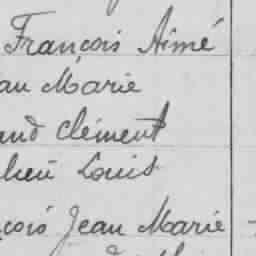 François Aimé
an Marie
and Clément
hieu Louis
çois Jean Marie